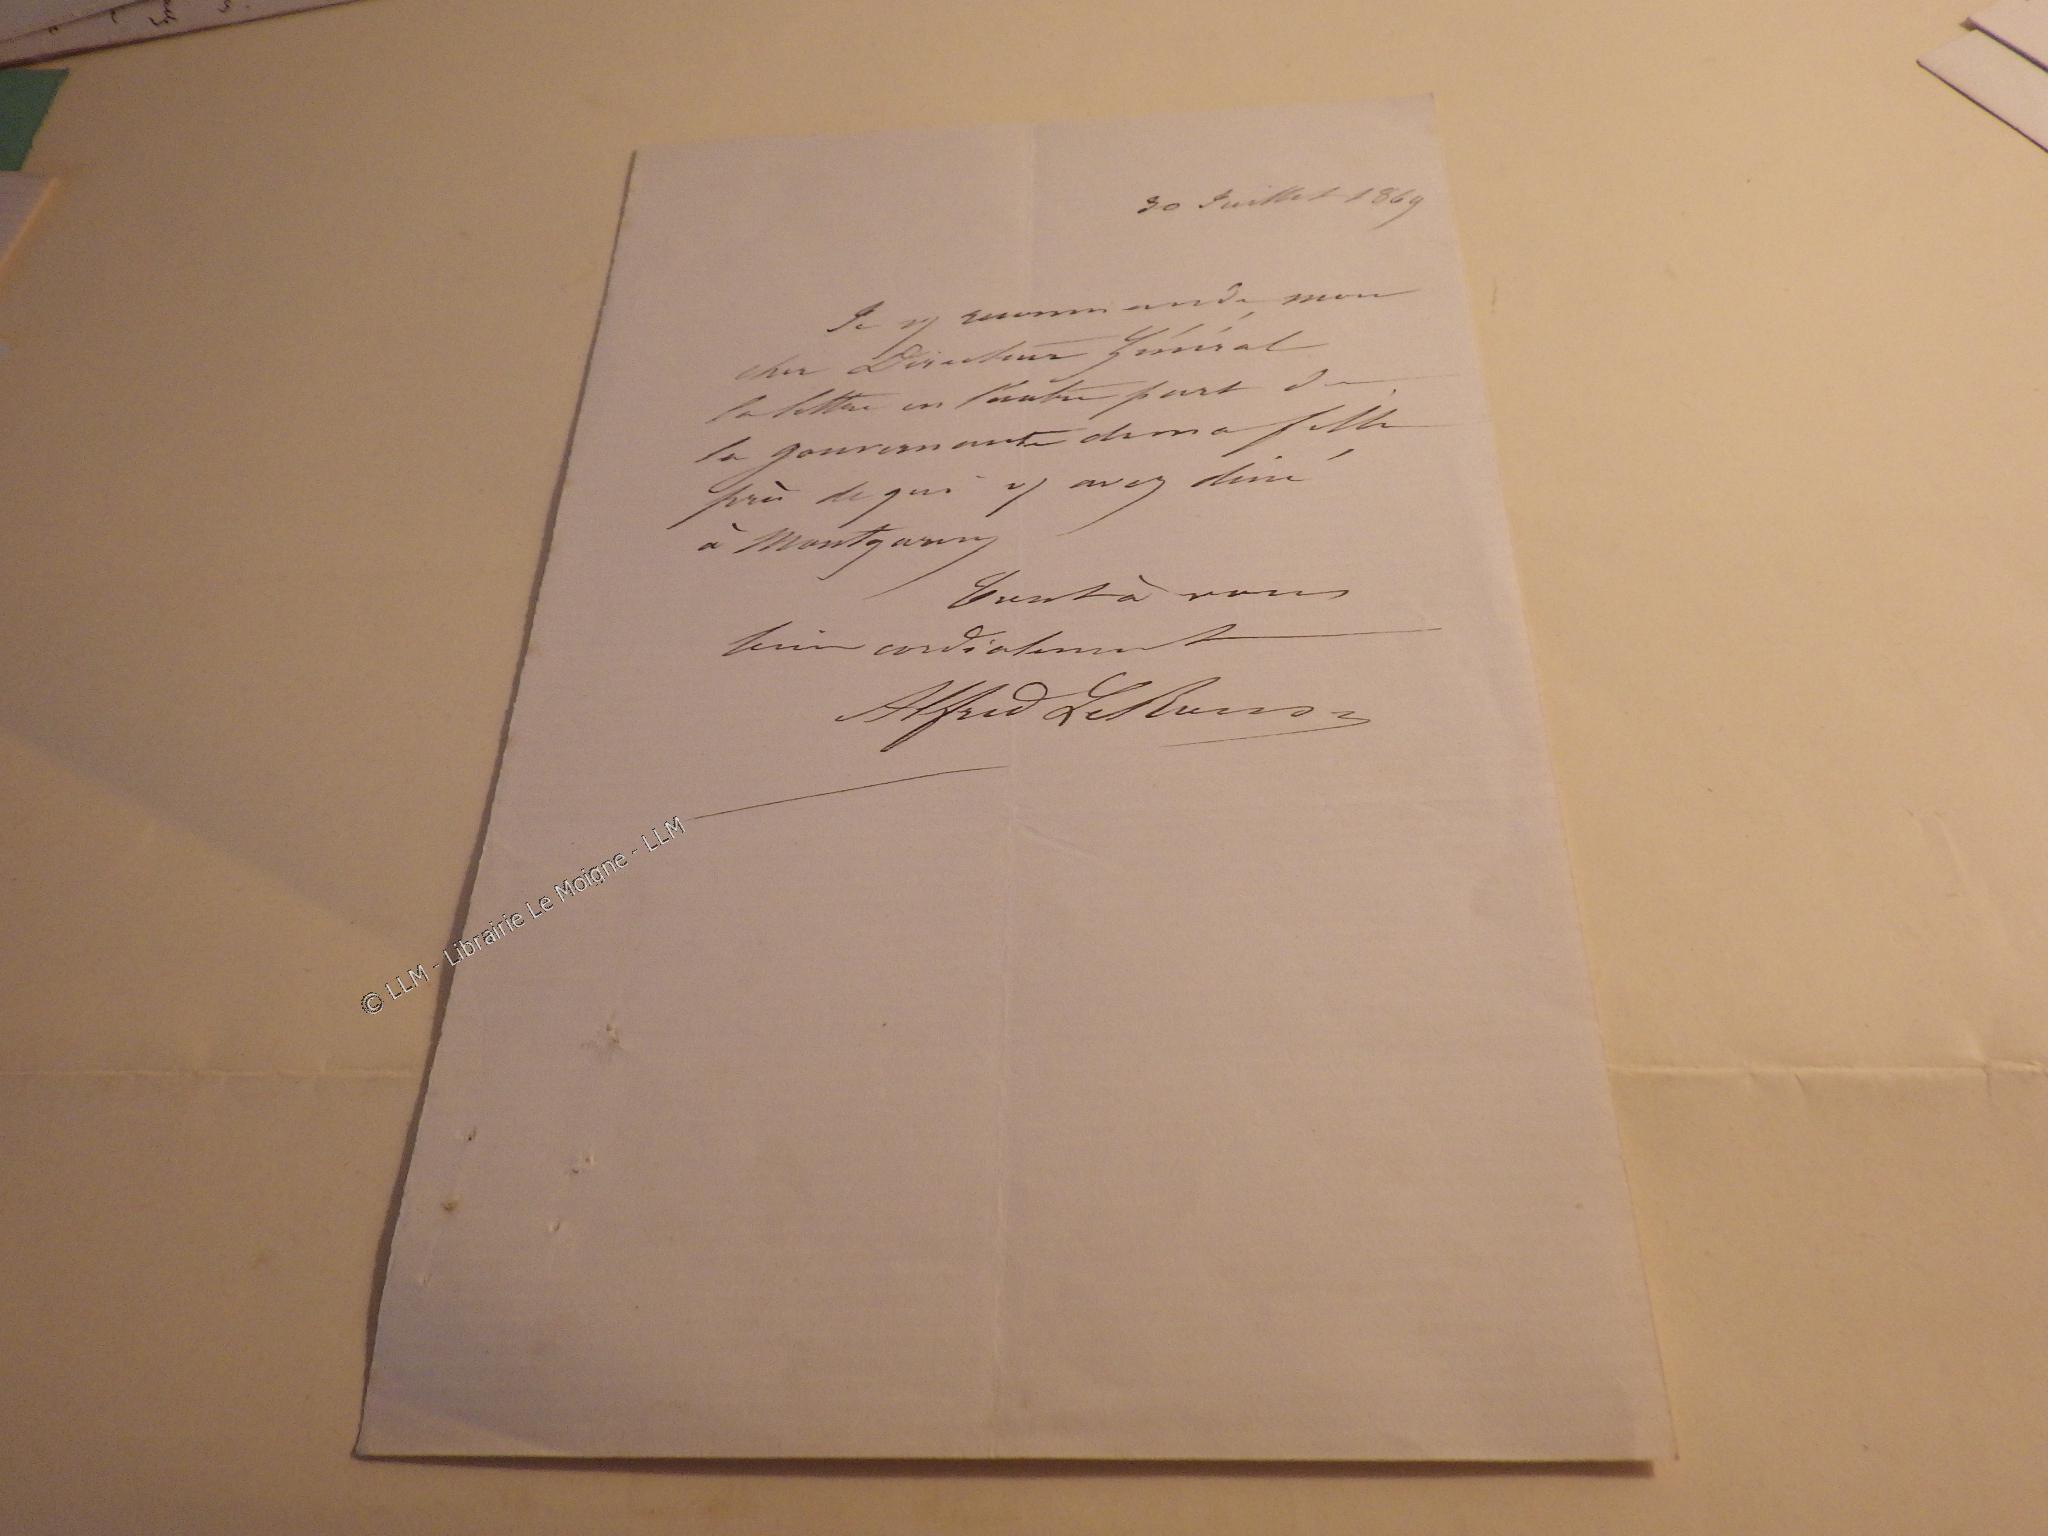 30 Juillet 1869
Je v recommande, mon
cher Directeur Général
la lettre en l'autre part de
la gouvernante de ma fille
près de qui v avez diné
à Montgeron
Tout à vous
bien cordialement
Alfred Le Roux
© LLM - Librairie Le Moigne - LLM